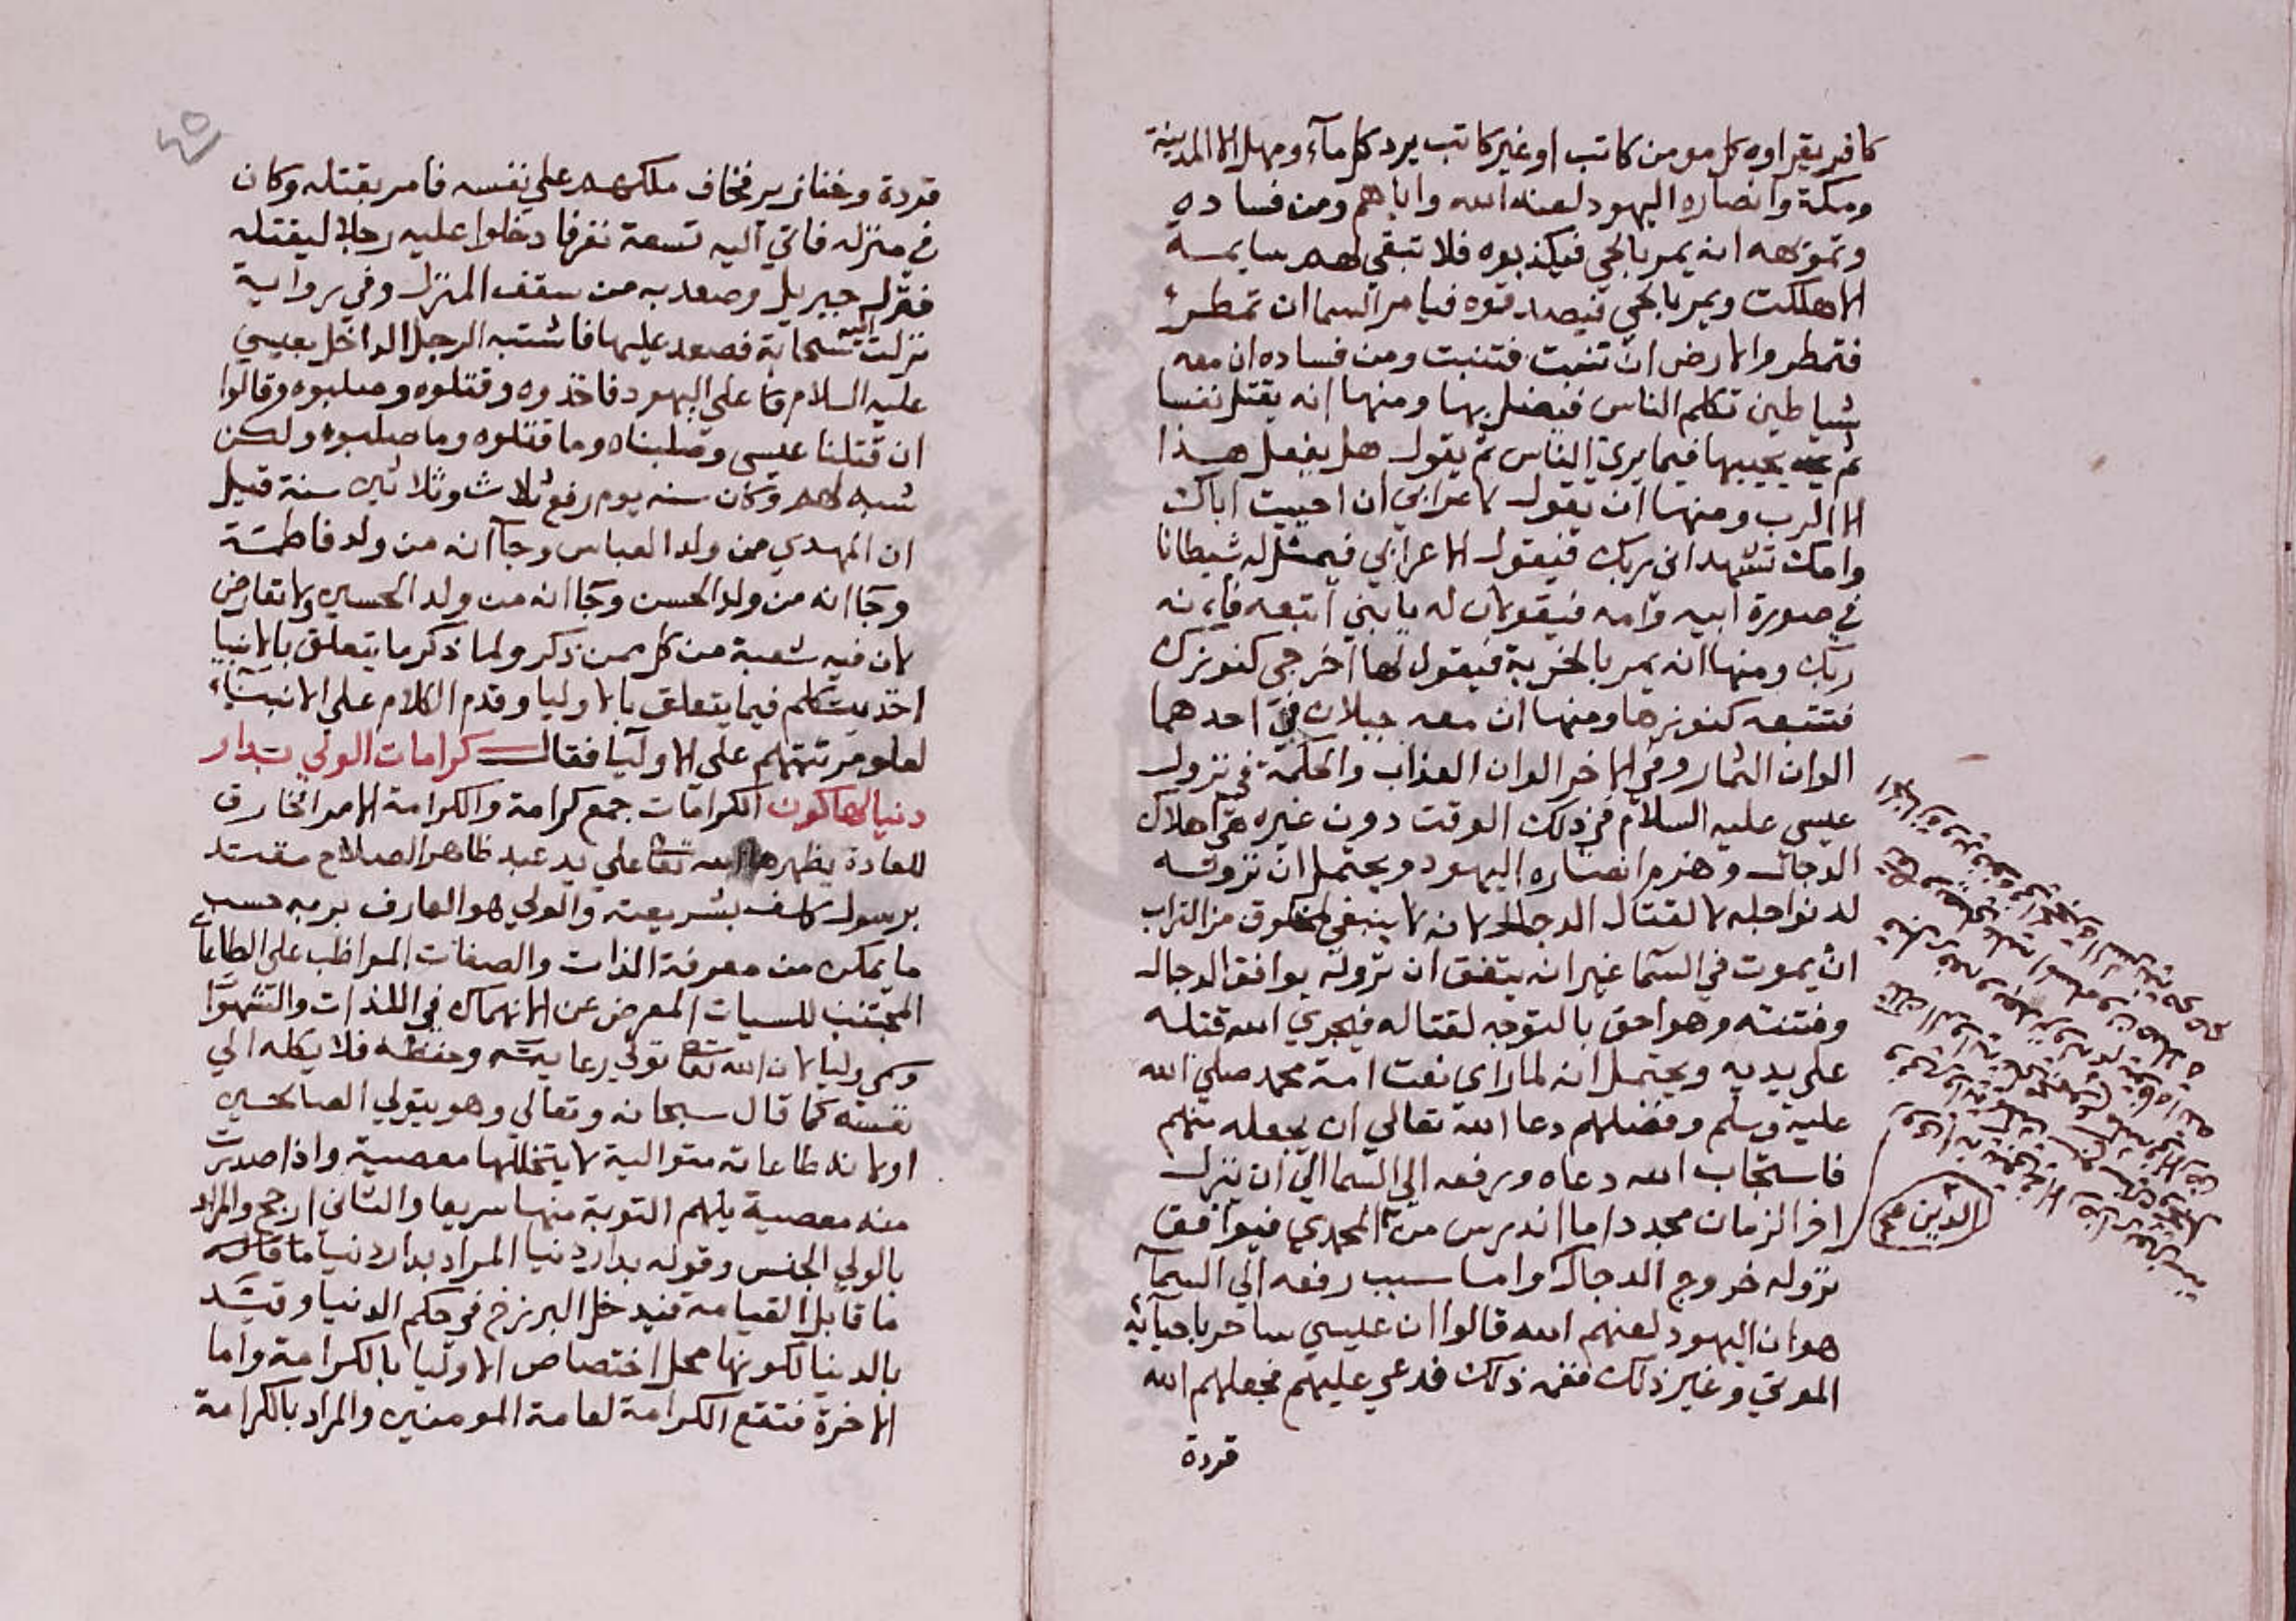 كافر يقراوه كل مومن كاتب او غير كاتب يرد كل مآء ومهل الا المدينة
ومكة وانصاره اليهود لعنه الله واياهم ومن فساده
وتموّهه انه يمر بالحي فيكذبوه فلا تبقي لهم سايمة
الا هلكت ويمر بالحي فيصدقوه فيامر السما ان تمطر
فتمطر والارض ان تنبت فتنبت ومن فساده ان معه
شياطين تكلم الناس فيضل بها ومنها انه يقتل نفسا
ثم يحييها فيما يري الناس ثم يقول هل يفعل هذا
الا الرب ومنها ان يقول لاعرابي ان احييت اباك
وامك تشهد اني ربك فيقول الاعرابي فيمثل له شيطانا
في صورة ابيه وامه فيقولان له يا بني اتبعه فانه
ربك ومنها انه يمر بالخربة فيقول لها اخرجي كنوزك
فتتبعه كنوزها ومنها ان معه جبلان في احدهما
الوان الثمار وفي الاخر الوان العذاب والحكمة في نزول
عيسي عليه السلام في ذلك الوقت دون غيره هي اهلاك
الدجال وهزم انصاره اليهود ويحتمل ان نزوله
لدنو اجله لا لقتال الدجال لانه لا ينبغي لمخلوق من التراب
ان يموت في السما غير انه يتفق ان نزوله يوافق الدجال
وفتنته وهو احق بالتوجه لقتاله فيجري الله قتله
علي يديه ويحتمل انه لما راى نعت امة محمد صلي الله
عليه وسلم وفضلهم دعا الله تعالي ان يجعله منهم
فاستجاب الله دعاه ورفعه الي السما الي ان ينزل
اخر الزمان مجددا ما اندرس من المحمدي فيوافق
نزوله خروج الدجال واما سبب رفعه الي السمآ
هو ان اليهود لعنهم الله قالوا ان عيسي ساحر باحيائه
الموتي وغير ذلك فدعي عليهم فجعلهم الله
قردة
الدين صح
قردة وخنازير فخاف ملكهم علي نفسه فامر بقتله وكان
في منزله فاتي اليه تسعة نفر فادخلوا عليه رجلا ليقتله
فنزل جبريل وصعد به من سقف المنزل وفي رواية
نزلت اليه سحابة فصعد عليها فاشتبه الرجل الداخل بعيسي
عليه السلام علي اليهود فاخذوه وقتلوه وصلبوه وقالوا
ان قتلنا عيسي وصلبناه وما قتلوه وما صلبوه ولكن
شبه لهم وكان سنه يوم رفع ثلاث وثلاثين سنة قيل
ان المهدي من ولد العباس وجآ انه من ولد فاطمة
وجا انه من ولد الحسن وجا انه من ولد الحسين ولا تعارض
لان فيه شعبة من كل ممن ذكر ولما ذكر ما يتعلق بالانبيا
اخذ يتكلم فيما يتعلق بالاوليا وقدم الكلام علي الانبيآء
لعلو مرتبتهم علي الاوليا فقال كرامات الولي بدار
دنيا لها كون الكرامات جمع كرامة والكرامة الامر الخارق
للعادة يظهرها الله تعا علي يد عبد ظاهر الصلاح مقتد
برسول كلف بشريعته والولي هو العارف بربه حسب
ما يمكن من معرفة الذات والصفات المواظب علي الطاعات
المجتنب للسيات المعرض عن الانهماك في اللذات والشهوات
وسمي وليا لان الله تعا تولي رعايته وحفظه فلا يكله الي
نفسه كما قال سبحانه وتعالي وهو يتولي الصالحين
او لانه طاعاته متوالية لا يتخللها معصية واذا صدرت
منه معصية يلهم التوبة منها سريعا والثاني ارجح والمراد
بالولي الجنس وقوله بدار دنيا المراد بدار دنيا ما قاله
ما قابل القيامة فيدخل البرزخ في حكم الدنيا وقيد
بالدنيا لكونها محل اختصاص الاوليا بالكرامة واما
الاخرة فتقع الكرامة لعامة المومنين والمراد بالكرامة